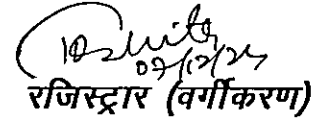 07/12/24
रजिस्ट्रार (वर्गीकरण)